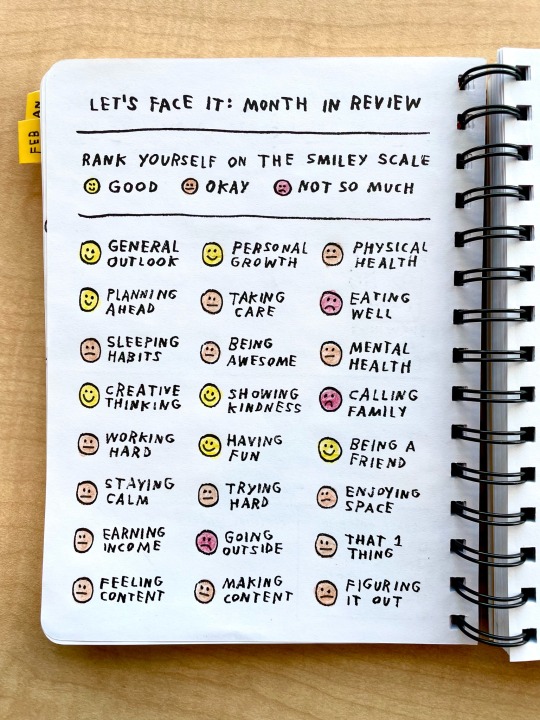 LET'S FACE IT: MONTH IN REVIEW
RANK YOURSELF ON THE SMILEY SCALE
GOOD OKAY NOT SO MUCH
GENERAL OUTLOOK
PERSONAL GROWTH
PHYSICAL HEALTH
PLANNING AHEAD
TAKING CARE
EATING WELL
SLEEPING HABITS
BEING AWESOME
MENTAL HEALTH
CREATIVE THINKING
SHOWING KINDNESS
CALLING FAMILY
WORKING HARD
HAVING FUN
BEING A FRIEND
STAYING CALM
TRYING HARD
ENJOYING SPACE
EARNING INCOME
GOING OUTSIDE
THAT 1 THING
FEELING CONTENT
MAKING CONTENT
FIGURING IT OUT
FEB